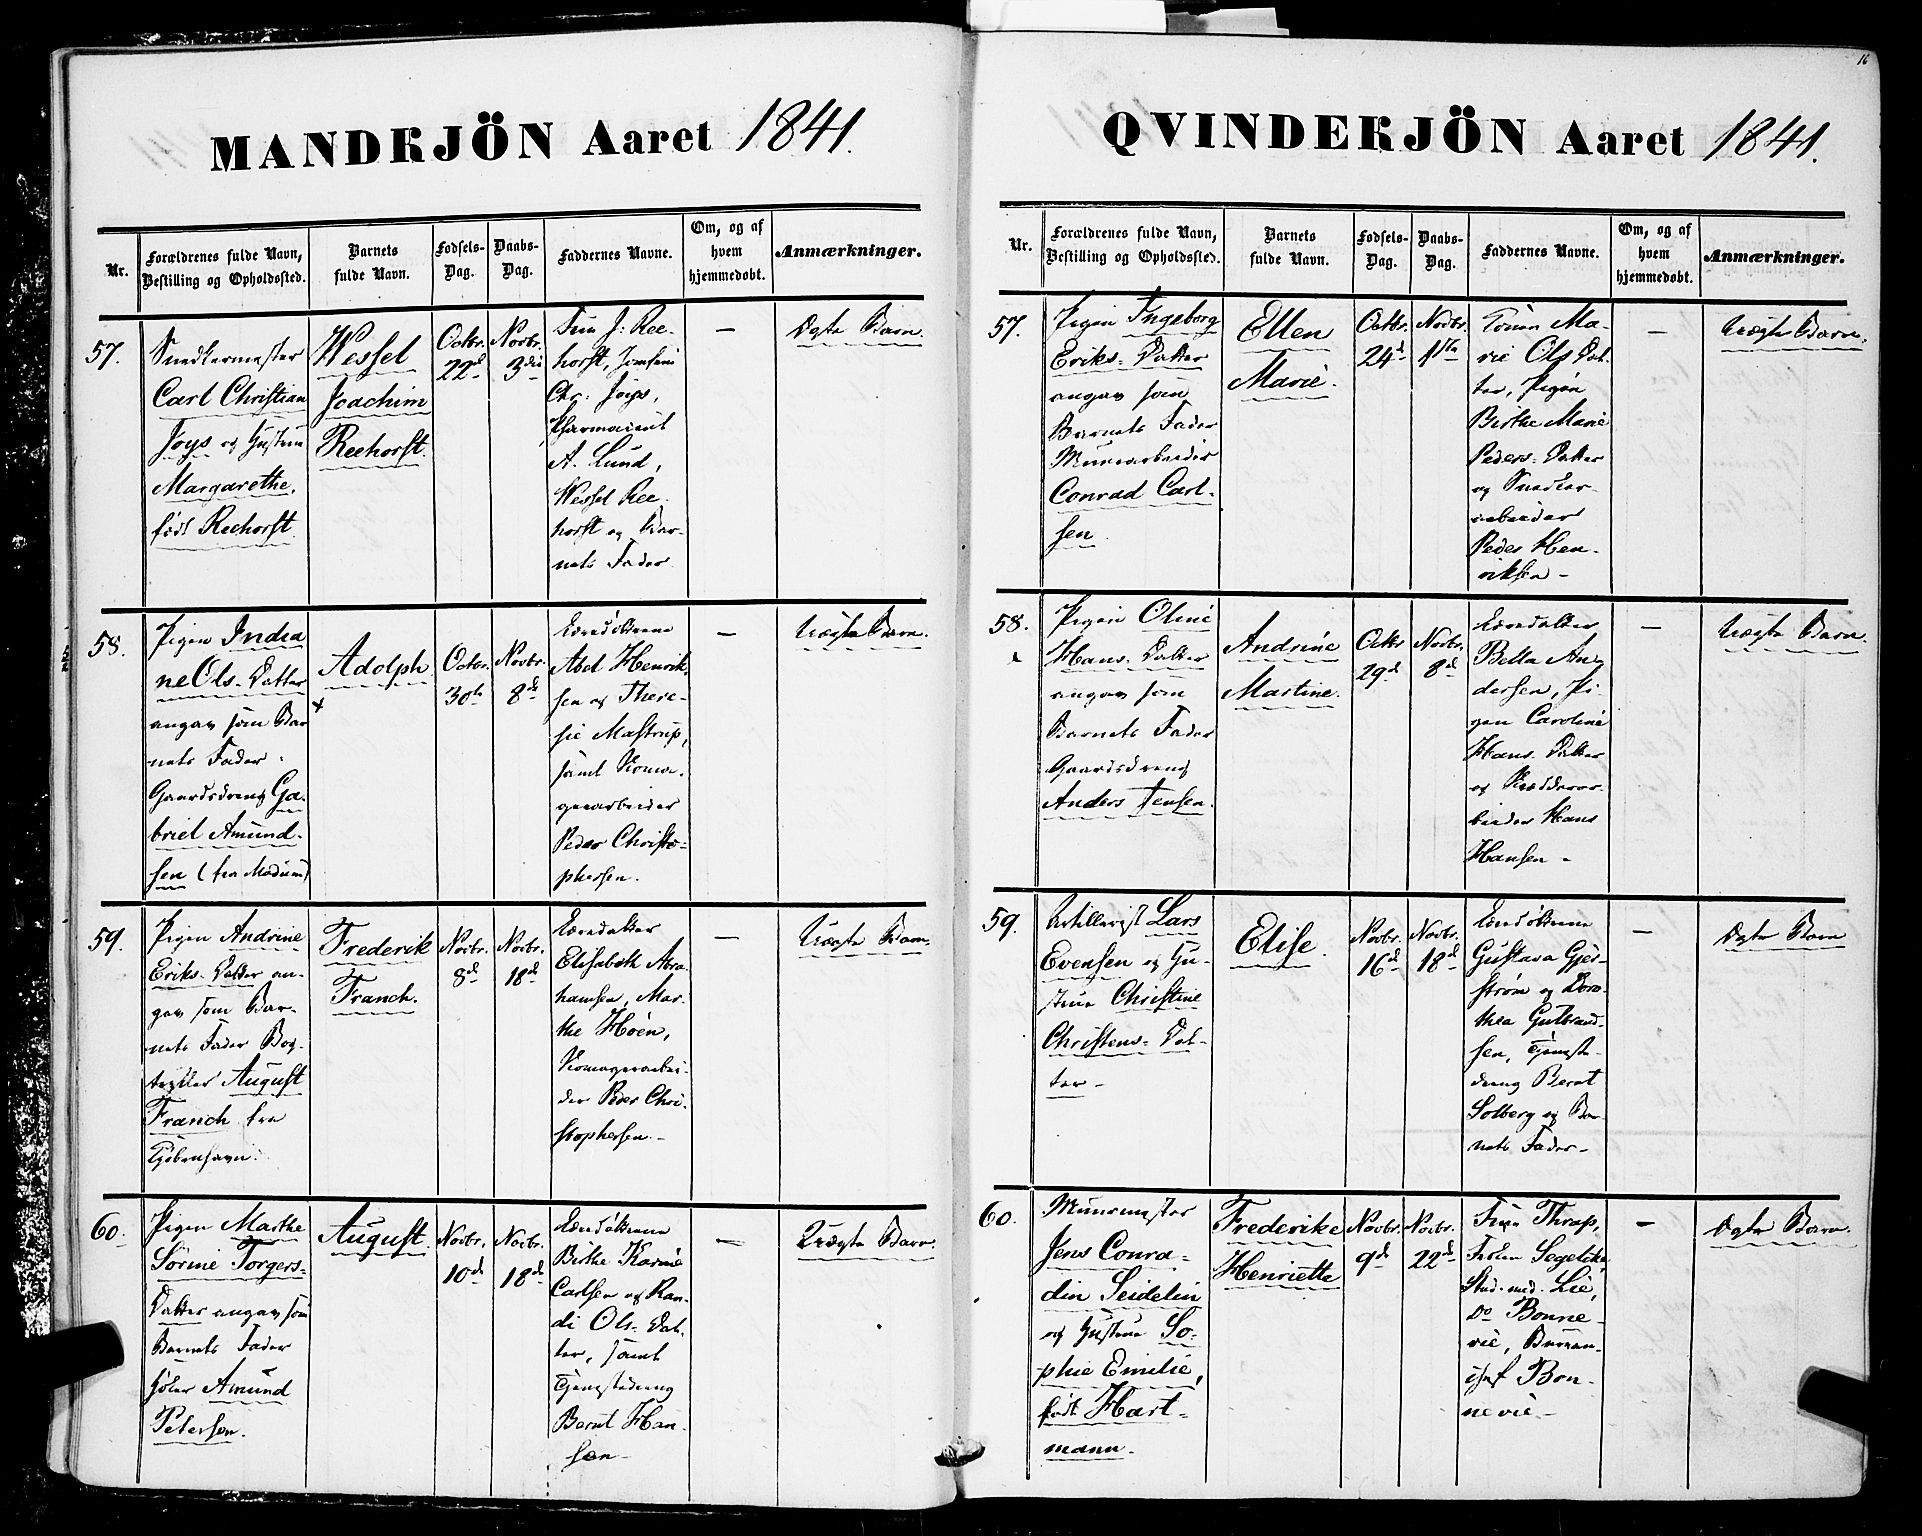 MANDKJÖN Aaret 1841.
Nr.
Forældrenes fulde Navn,
Bestilling og Opholdssted.
Barnets
fulde Navn.
Fødsels-
Dag.
Daabs-
Dag.
Faddernes Navne.
Om, og af
hvem
hjemmedøbt.
Anmærkninger.
57.
Snedkermester
Carl Christian
Joys og Hustrue
Margarethe,
født Reehorst.
Wessel
Joachim
Reehorst.
Octbr.
22d
Novbr.
3die
Frue J: Ree-
horst, Jomfrue
Chr: Joys,
Pharmaceut
A. Lund,
Wessel Ree-
horst og Bar-
nets Fader.
—
Ægte Barn.
58.
Pigen India
ne Ols-Datter
angav som Bar
nets Fader
Gaardsdreng Ga-
briel Amund-
sen (fra Modum)
Adolph.
Octbr.
30te
Novbr.
8de
Abel Henrik
sen og There-
sie Mastrup,
samt
Peder Christo-
phersen.
—
Uægte Barn.
59.
Pigen Andrine
Eriks-Datter an-
gav som Bar-
nets Fader Bog-
trykker August
Franch fra
Kjøbenhavn.
Frederik
Franch.
Novbr.
8d
Novbr.
18d
Elisabeth Abra
hamsen, Mar-
the Hoën,
der Peder Chri-
stophersen.-
—
Uægte Barn.
60.
Pigen Marthe
Sørine Torgers-
Datter angav som
Barnets Fader
Amund
Petersen.
August.
Novbr.
10d
Novbr.
18d
Birthe Karine
Carlsen og Ran-
di Ols-Dat-
ter, samt
Tjenestedreng
Bernt Han-
sen-
—
Uægte Barn.
16
QVINDEKJÖN Aaret 1841.
Nr.
Forældrenes fulde Navn,
Bestilling og Opholdssted.
Barnets
fulde Navn.
Fødsels-
Dag.
Daabs-
Dag.
Faddernes Navne.
Om, og af
hvem
hjemmedøbt.
Anmærkninger.
57.
Pigen Ingeborg
Eriks-Datter
angav som
Barnets Fader
Muurarbeider
Conrad Carl-
sen.
Ellen
Marie.
Octbr.
24d
Novbr.
1ste
Konen Ma-
rie Ols Dat-
ter, Pigen
Birthe Marie
Peders-Datter
og Snedker-
arbeider
Peder Hen-
riksen-
—
Uægte Barn.
58.
Pigen Oline
Hans-Datter
angav som
Barnets Fader
Gaardsdreng
Anders Jensen.
Andrine
Martine.
Octbr
29d
Novbr.
8d
Bella An-
dersen, Pi-
gen Caroline
Hans-Datter
og
beider Hans
Hansen-
—
Uægte Barn
59.
Artillerist Lars
Evensen og Hu-
strue Christine
Christens-Dat-
ter-
Elise.
Novbr.
16d
Novbr.
18d
Gustava Gjer-
strøm og Doro-
thea Gulbrand-
sen, Tjeneste-
dreng Bernt
Solberg og Bar-
nets Fader-
—
Ægte Barn
60.
Muurmester
Jens Conra-
din Seidelin
og Hustrue So-
phie Emilie,
født Hart-
mann.
Frederike
Henriette
Novbr.
9d
Novbr.
22d
Frue Thrap,
Frøken Segelcke,
Stud. med. Lie,
Do Bonne-
vie,
Bon-
nevie-
—
Ægte Barn.